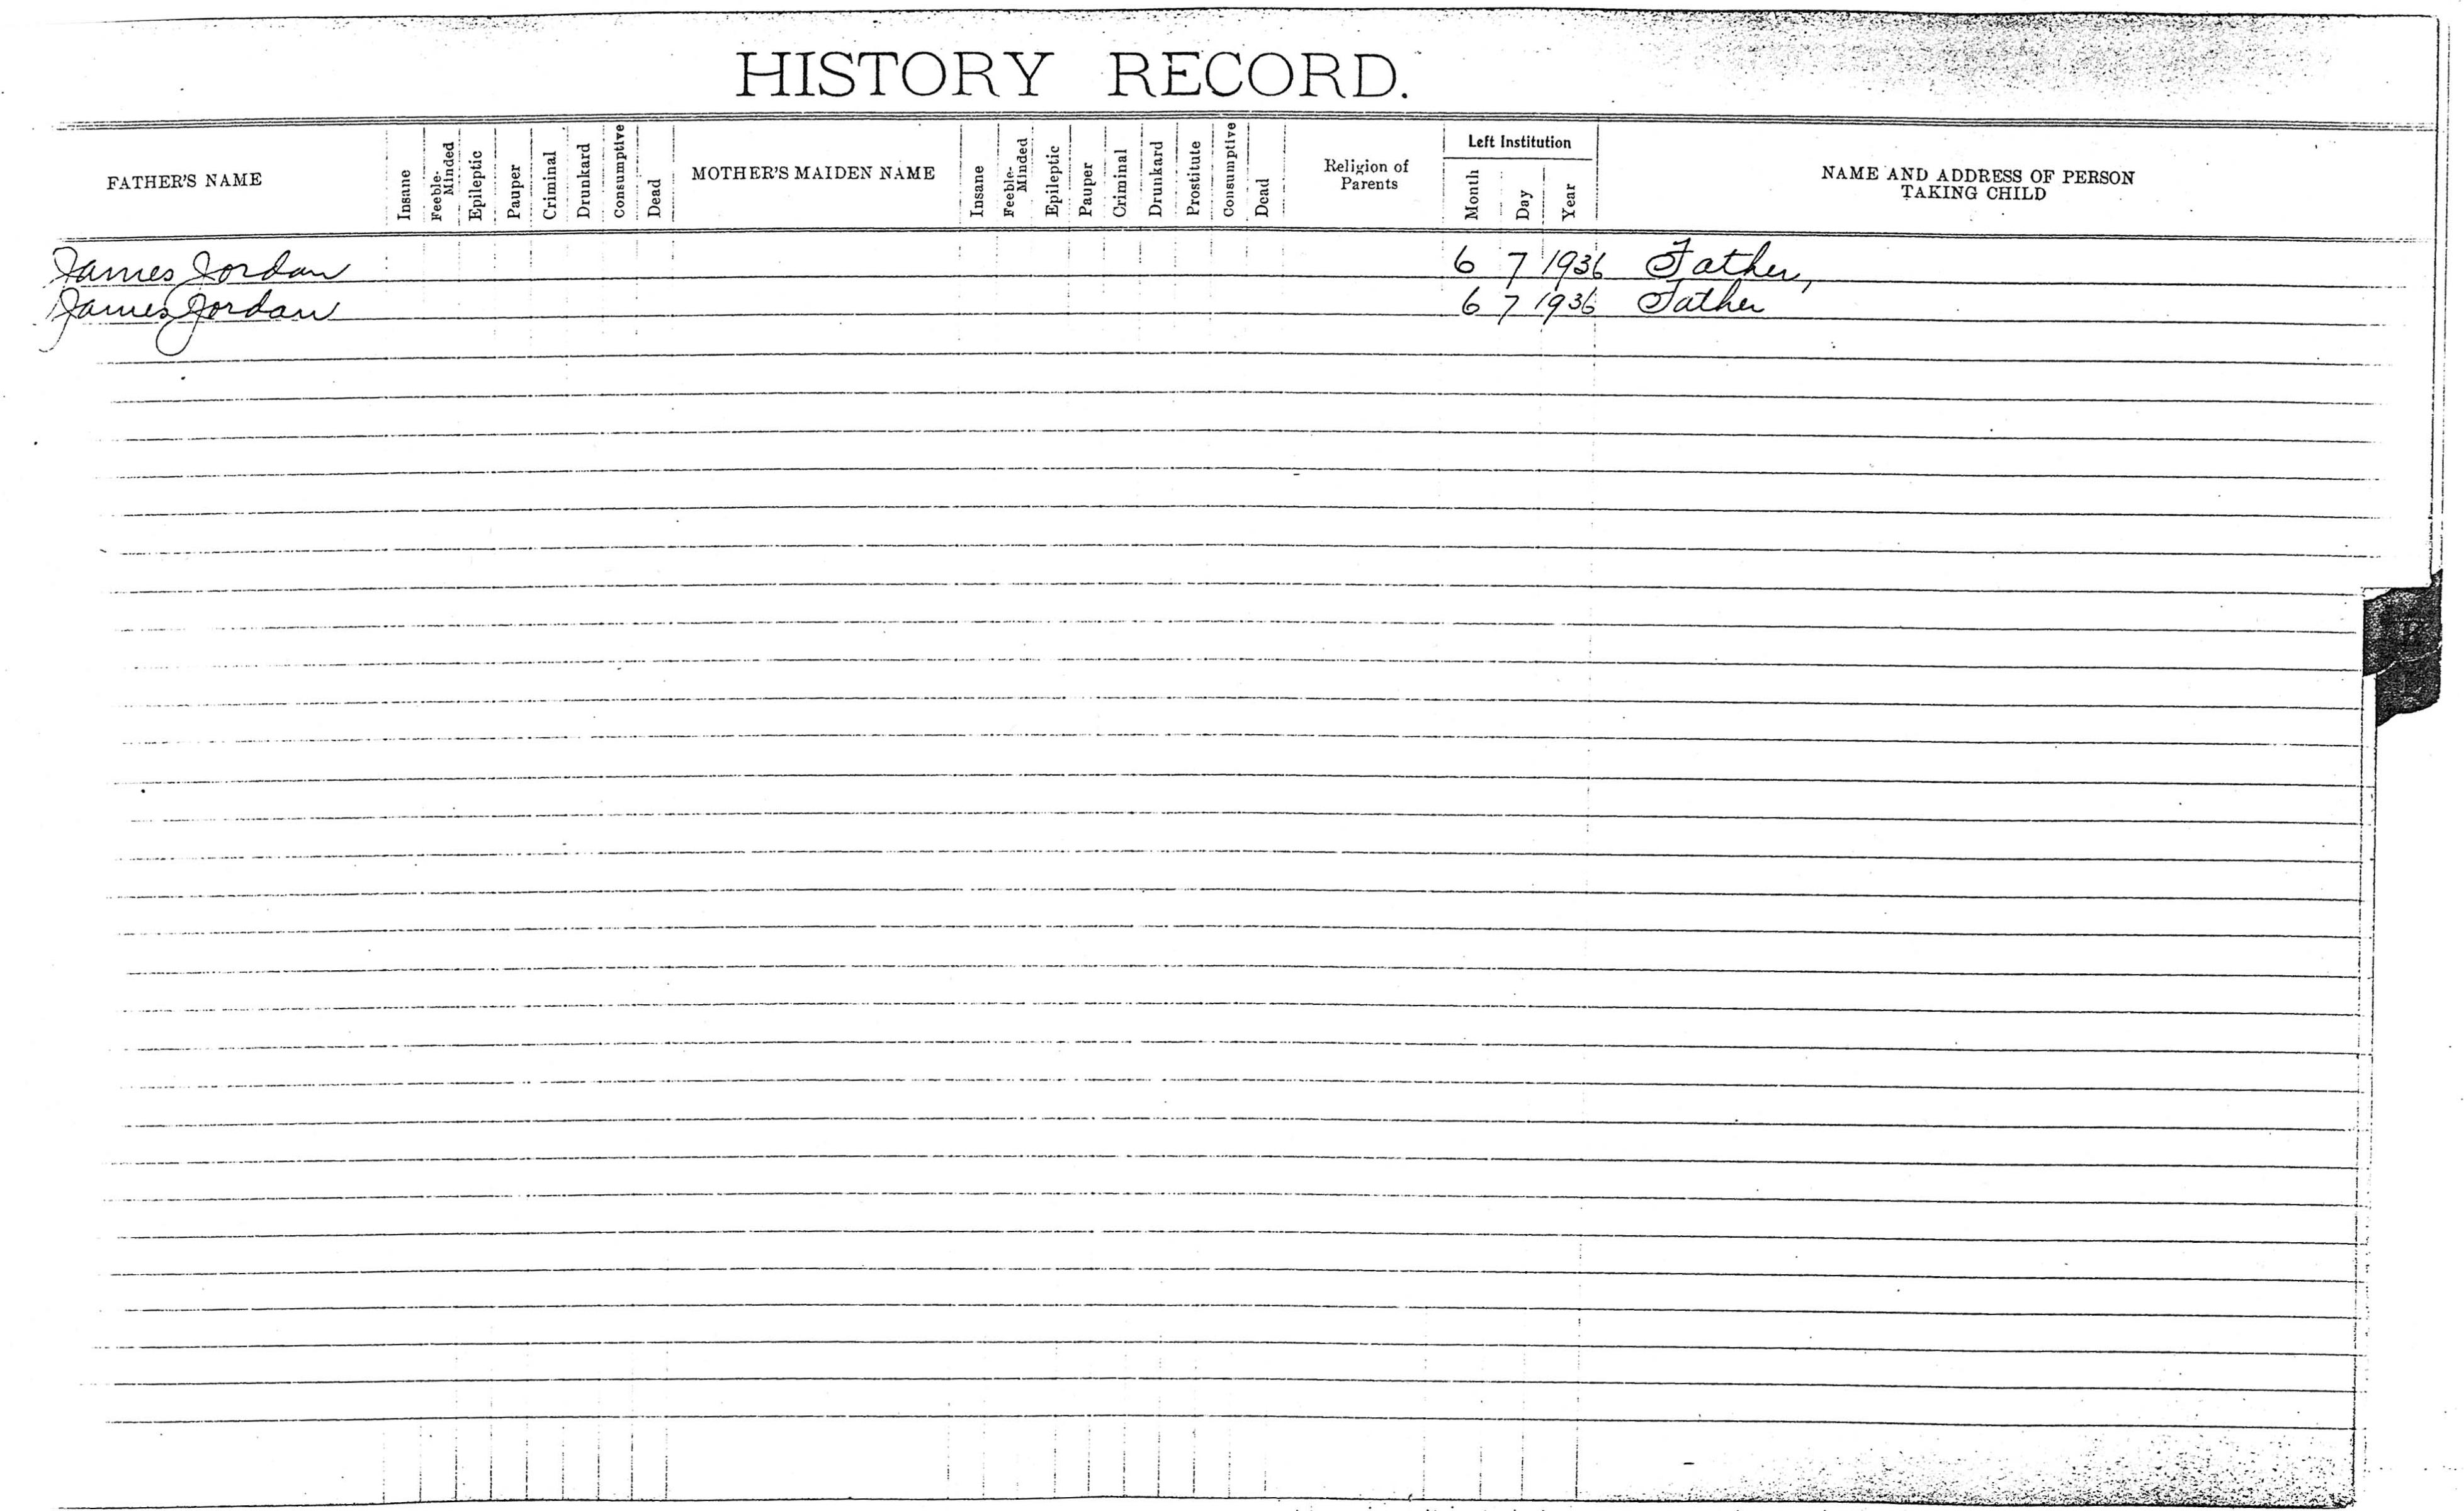 HISTORY RECORD.
FATHER'S NAME
Insane
Feeble-
Minded
Epileptic
Pauper
Criminal
Drunkard
Consumptive
Dead
MOTHER'S MAIDEN NAME
Insane
Feeble-
Minded
Epileptic
Pauper
Criminal
Drunkard
Prostitute
Consumptive
Dead
Religion of
Parents
Left Institution
Month
Day
Year
NAME AND ADDRESS OF PERSON
TAKING CHILD
James Jordan 6 7 1936 Father,
James Jordan 6 7 1936 Father